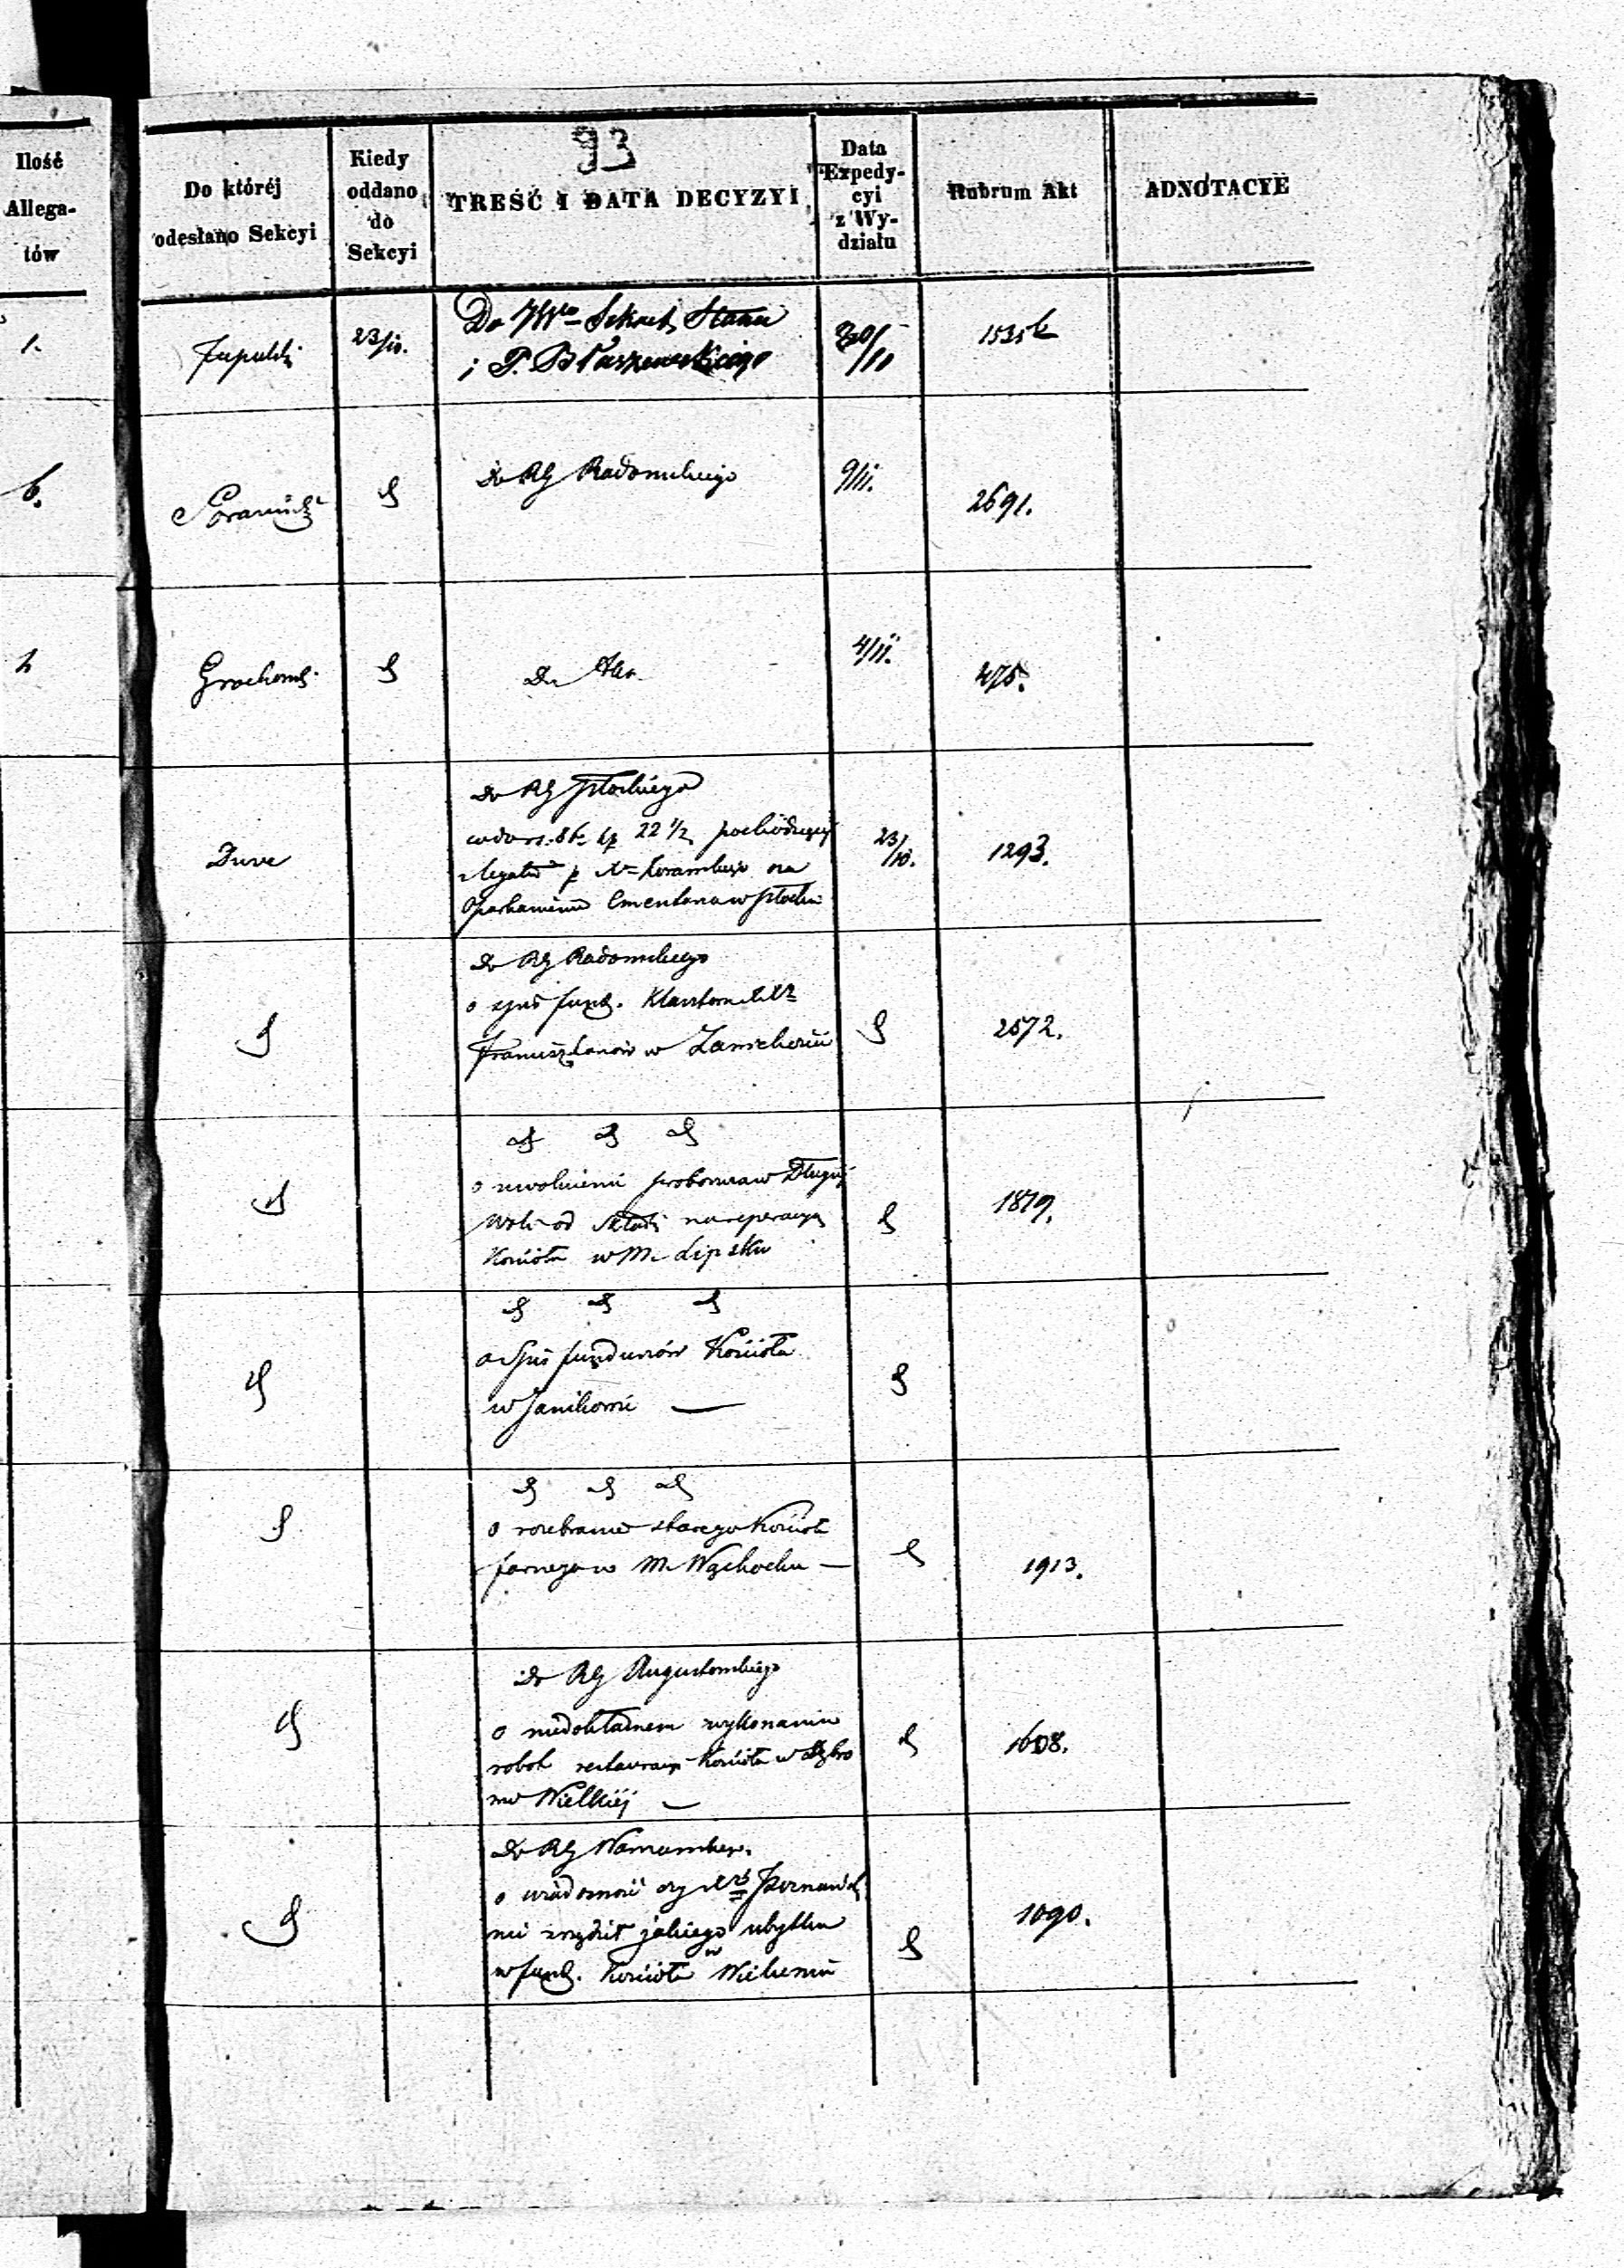 93
Ilość
Allega-
tów
Do któréj
odesłano Sekcyi
Kiedy
oddano
do
Sekcyi
TREŚĆ I DATA DECYZYI
Data
Expedy-
cyi
z Wy-
działu
Rubrum Akt
ADNOTACYE
1.
23/10.
Do JW Sekret Stanu
i P. Błaszewskiego
30/10
1535
6.
do RG Radomskiego
9/11.
2691.
2
Grochows.
Do
4/11.
475.
Duve
do RG Płockiego
22 1/2 pochodzącej
z legatu p.
Oparkanienie Cmentarza w Płocku
23/10.
1293.
do RG Radomskiego
o spis fund. Klasztoru
Franciszkanów w Zawichoście
2572.
o uwolnienie proboszcza w Długiej
Woli od składki na reperacyę
Kościoła w M. Lipsku
1879.
o spis funduszów Kościoła
w Janikowie —
o rozebranie starego Kościoła
farnego w M. Wąchocku —
1913.
do RG Augustowskiego
o niedokładnem wykonaniu
robot restauracyi Kościoła w Dąbro
wie Wielkiej —
1608.
do RG Warszawskiego.
o wiadomość czy
nie zrządził jakiego ubytku
w fund. Kościoła w Wieluniu
1090.